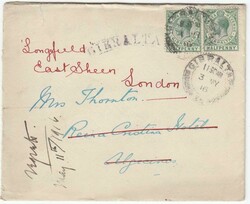 GIBRALTAR
Longfield
East Sheen
London
Mrs Thornton.
Reina Cristina Hotel
Algeciras
HALFPENNY HALFPENNY
GIBRALTAR
May 11th/1916